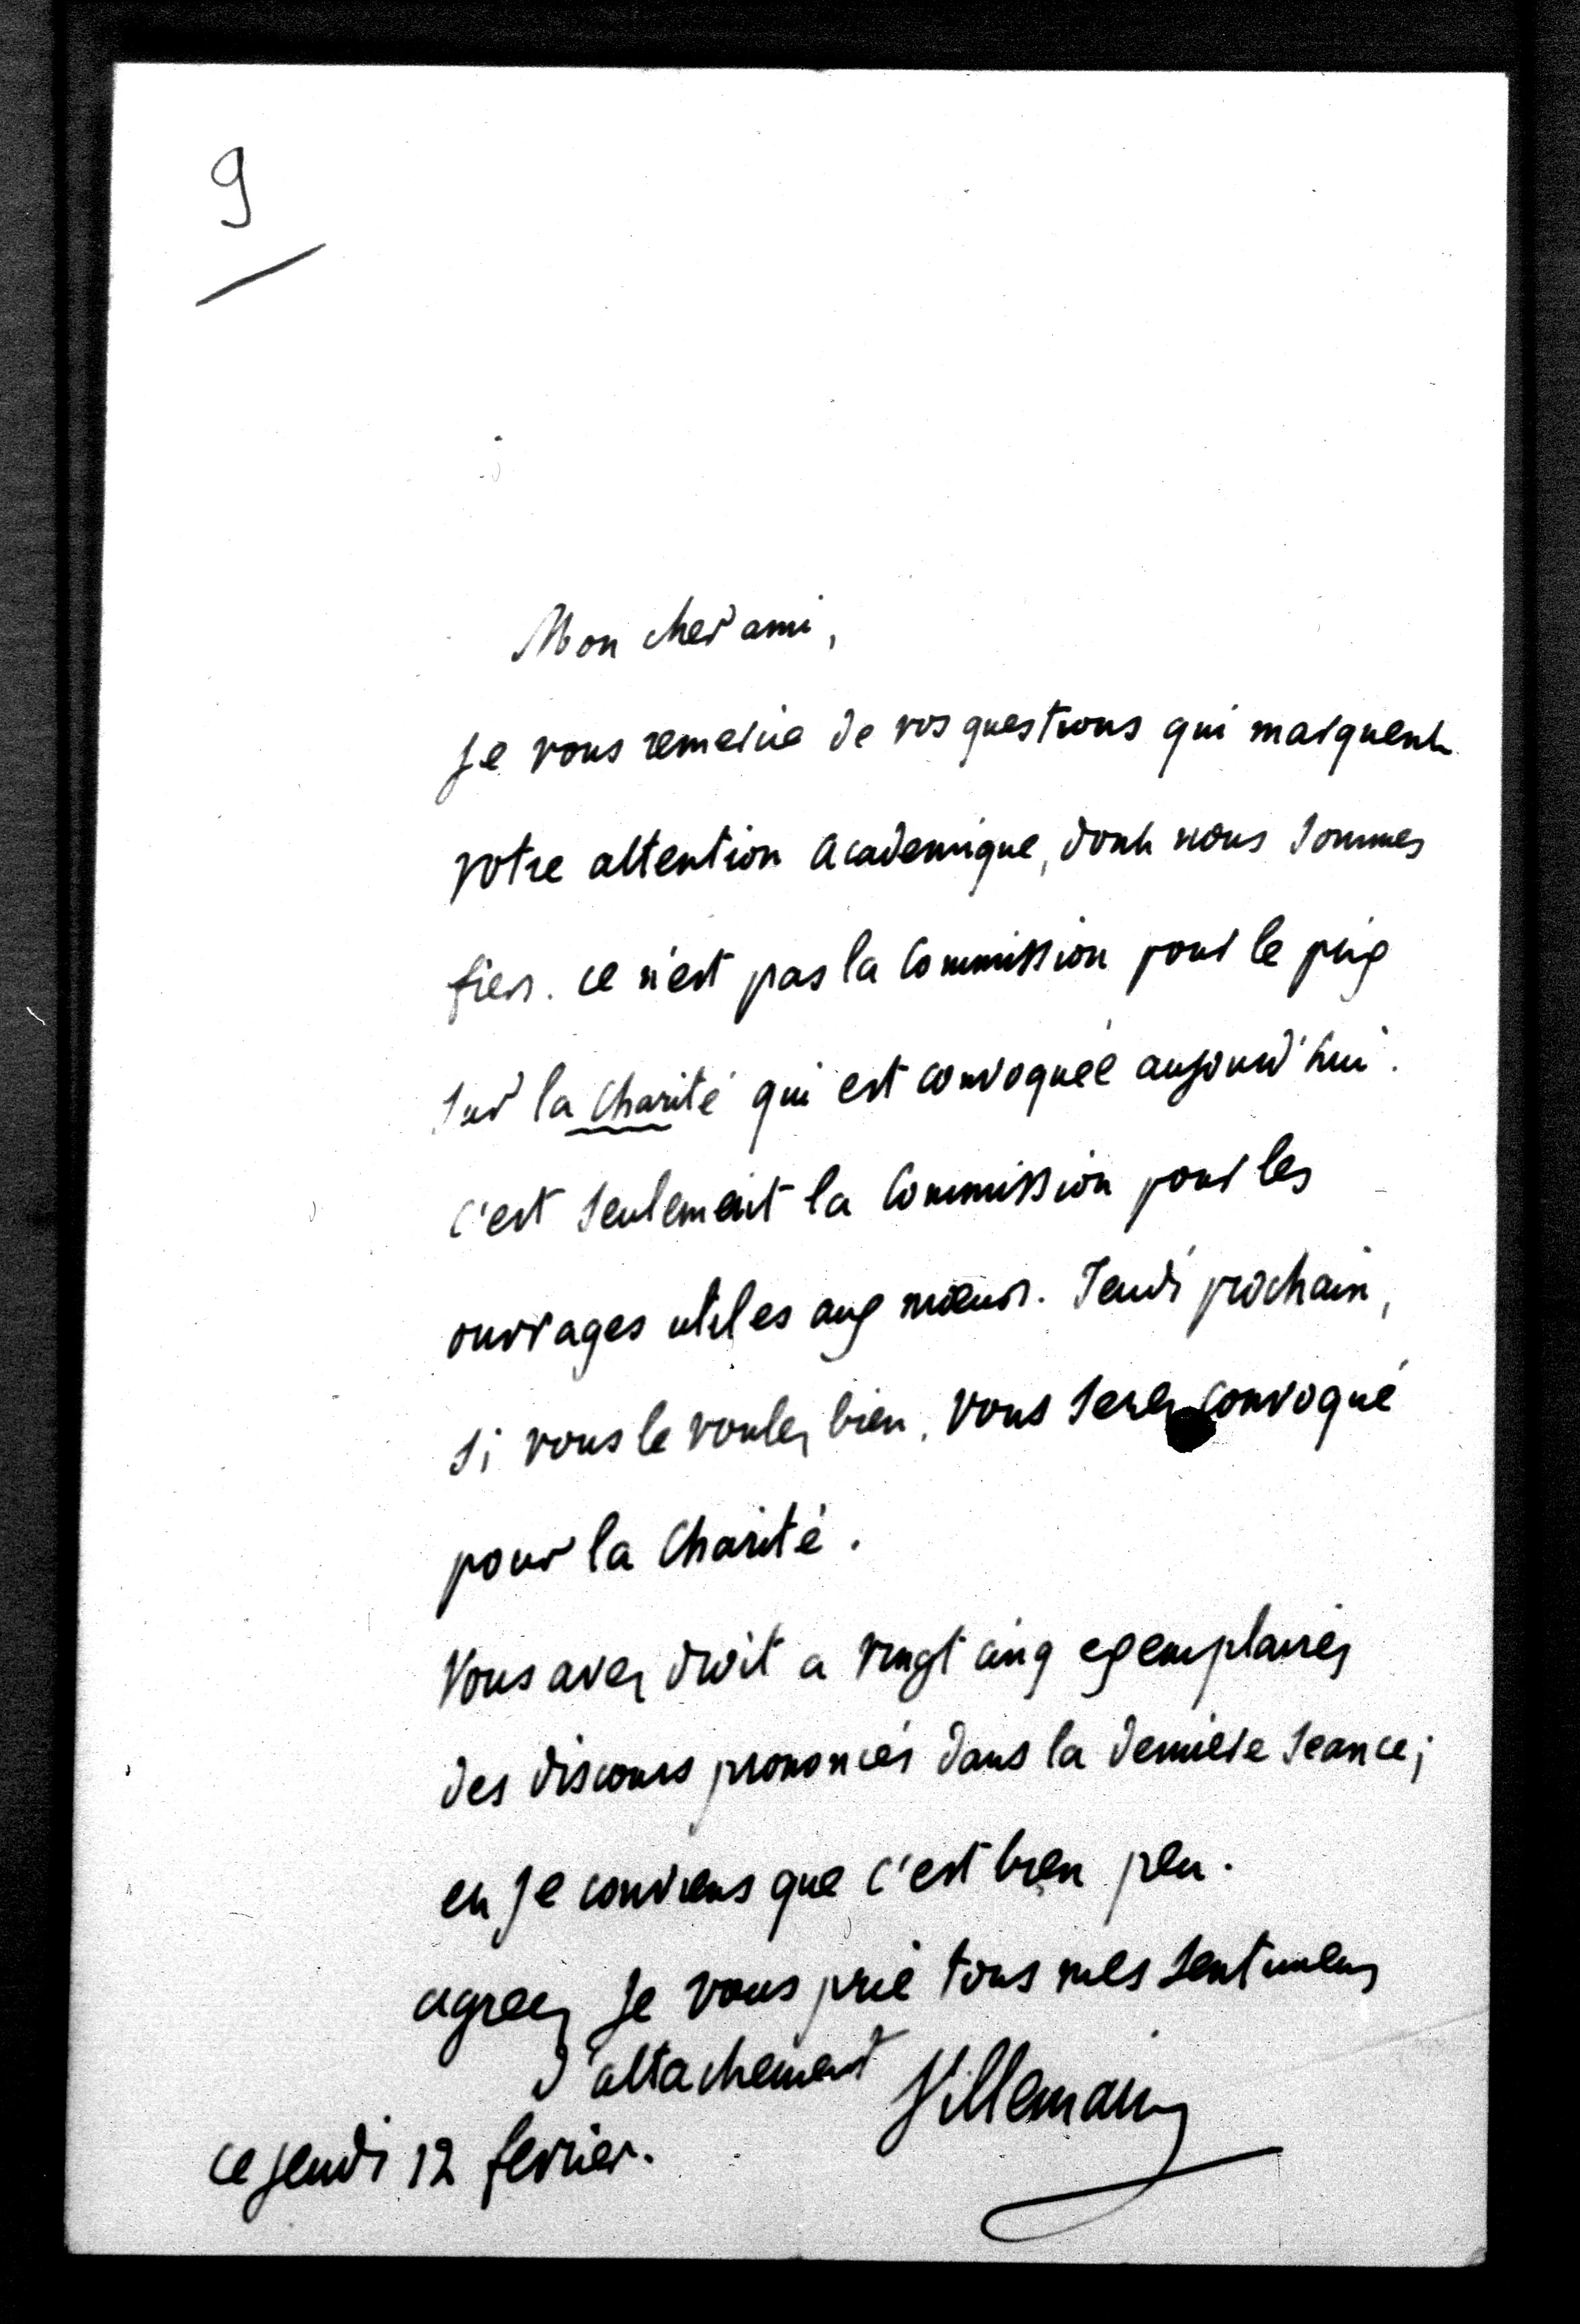 9
Mon cher ami,
je vous remercie de vos questions qui marquent
votre attention academique, dont nous sommes
fiers. ce n'est pas la Commission pour le prix
sur la Charité qui est convoquée aujourd'hui.
c'est seulement la Commission pour les
ouvrages utiles aux mœurs. Jeudi prochain,
si vous le voulez bien, vous serez convoqué
pour la Charité.
Vous avez droit a vingt cinq exemplaires
des discours prononcés dans la derniere seance;
et je conviens que c'est bien peu.
agreez je vous prie tous mes sentimens
d'attachement Villemain
ce jeudi 12 fevrier.